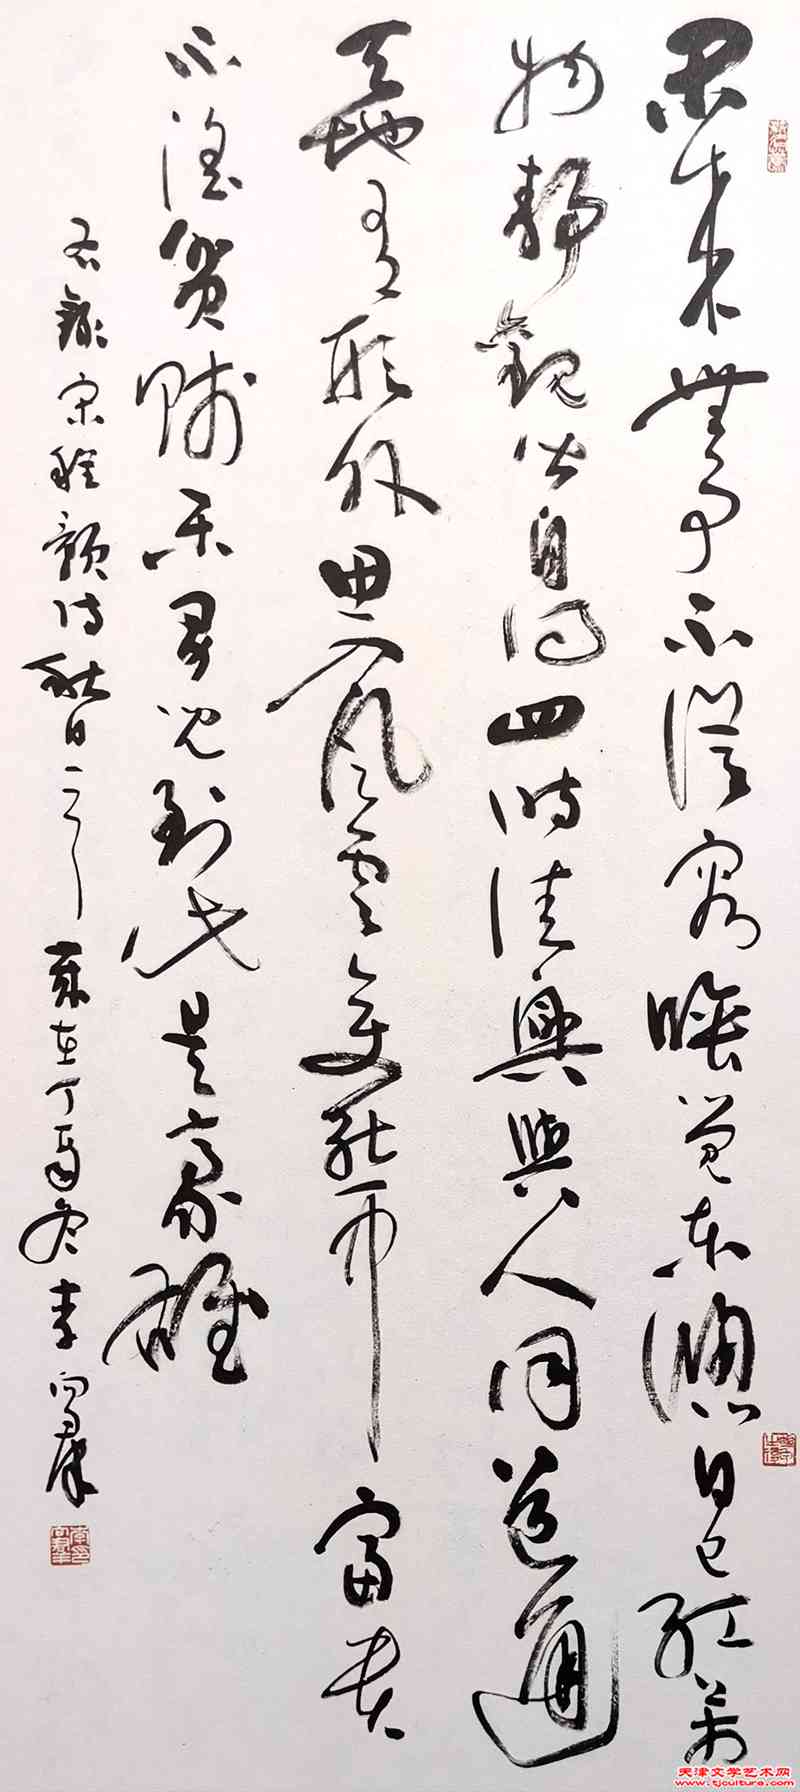 閑来無事不從容睡覺東窗日已紅萬
物靜觀皆自得四時佳興與人同道通
天地有形外思入風雲變態中富貴
不淫貧賤樂男兒到此是豪雄
右錄宋程顥詩秋日一首 歲在丁酉冬 李
天津文学艺术网
www.tjculture.com